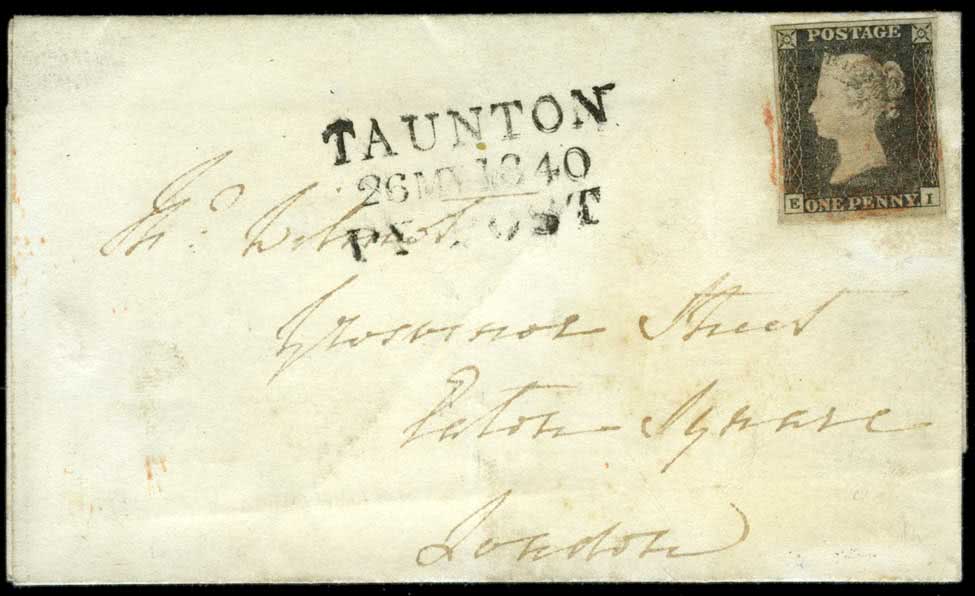 POSTAGE
E ONE PENNY I
TAUNTON
26 MY 1840
PY POST
Grosvenor Street
Eaton Square
London